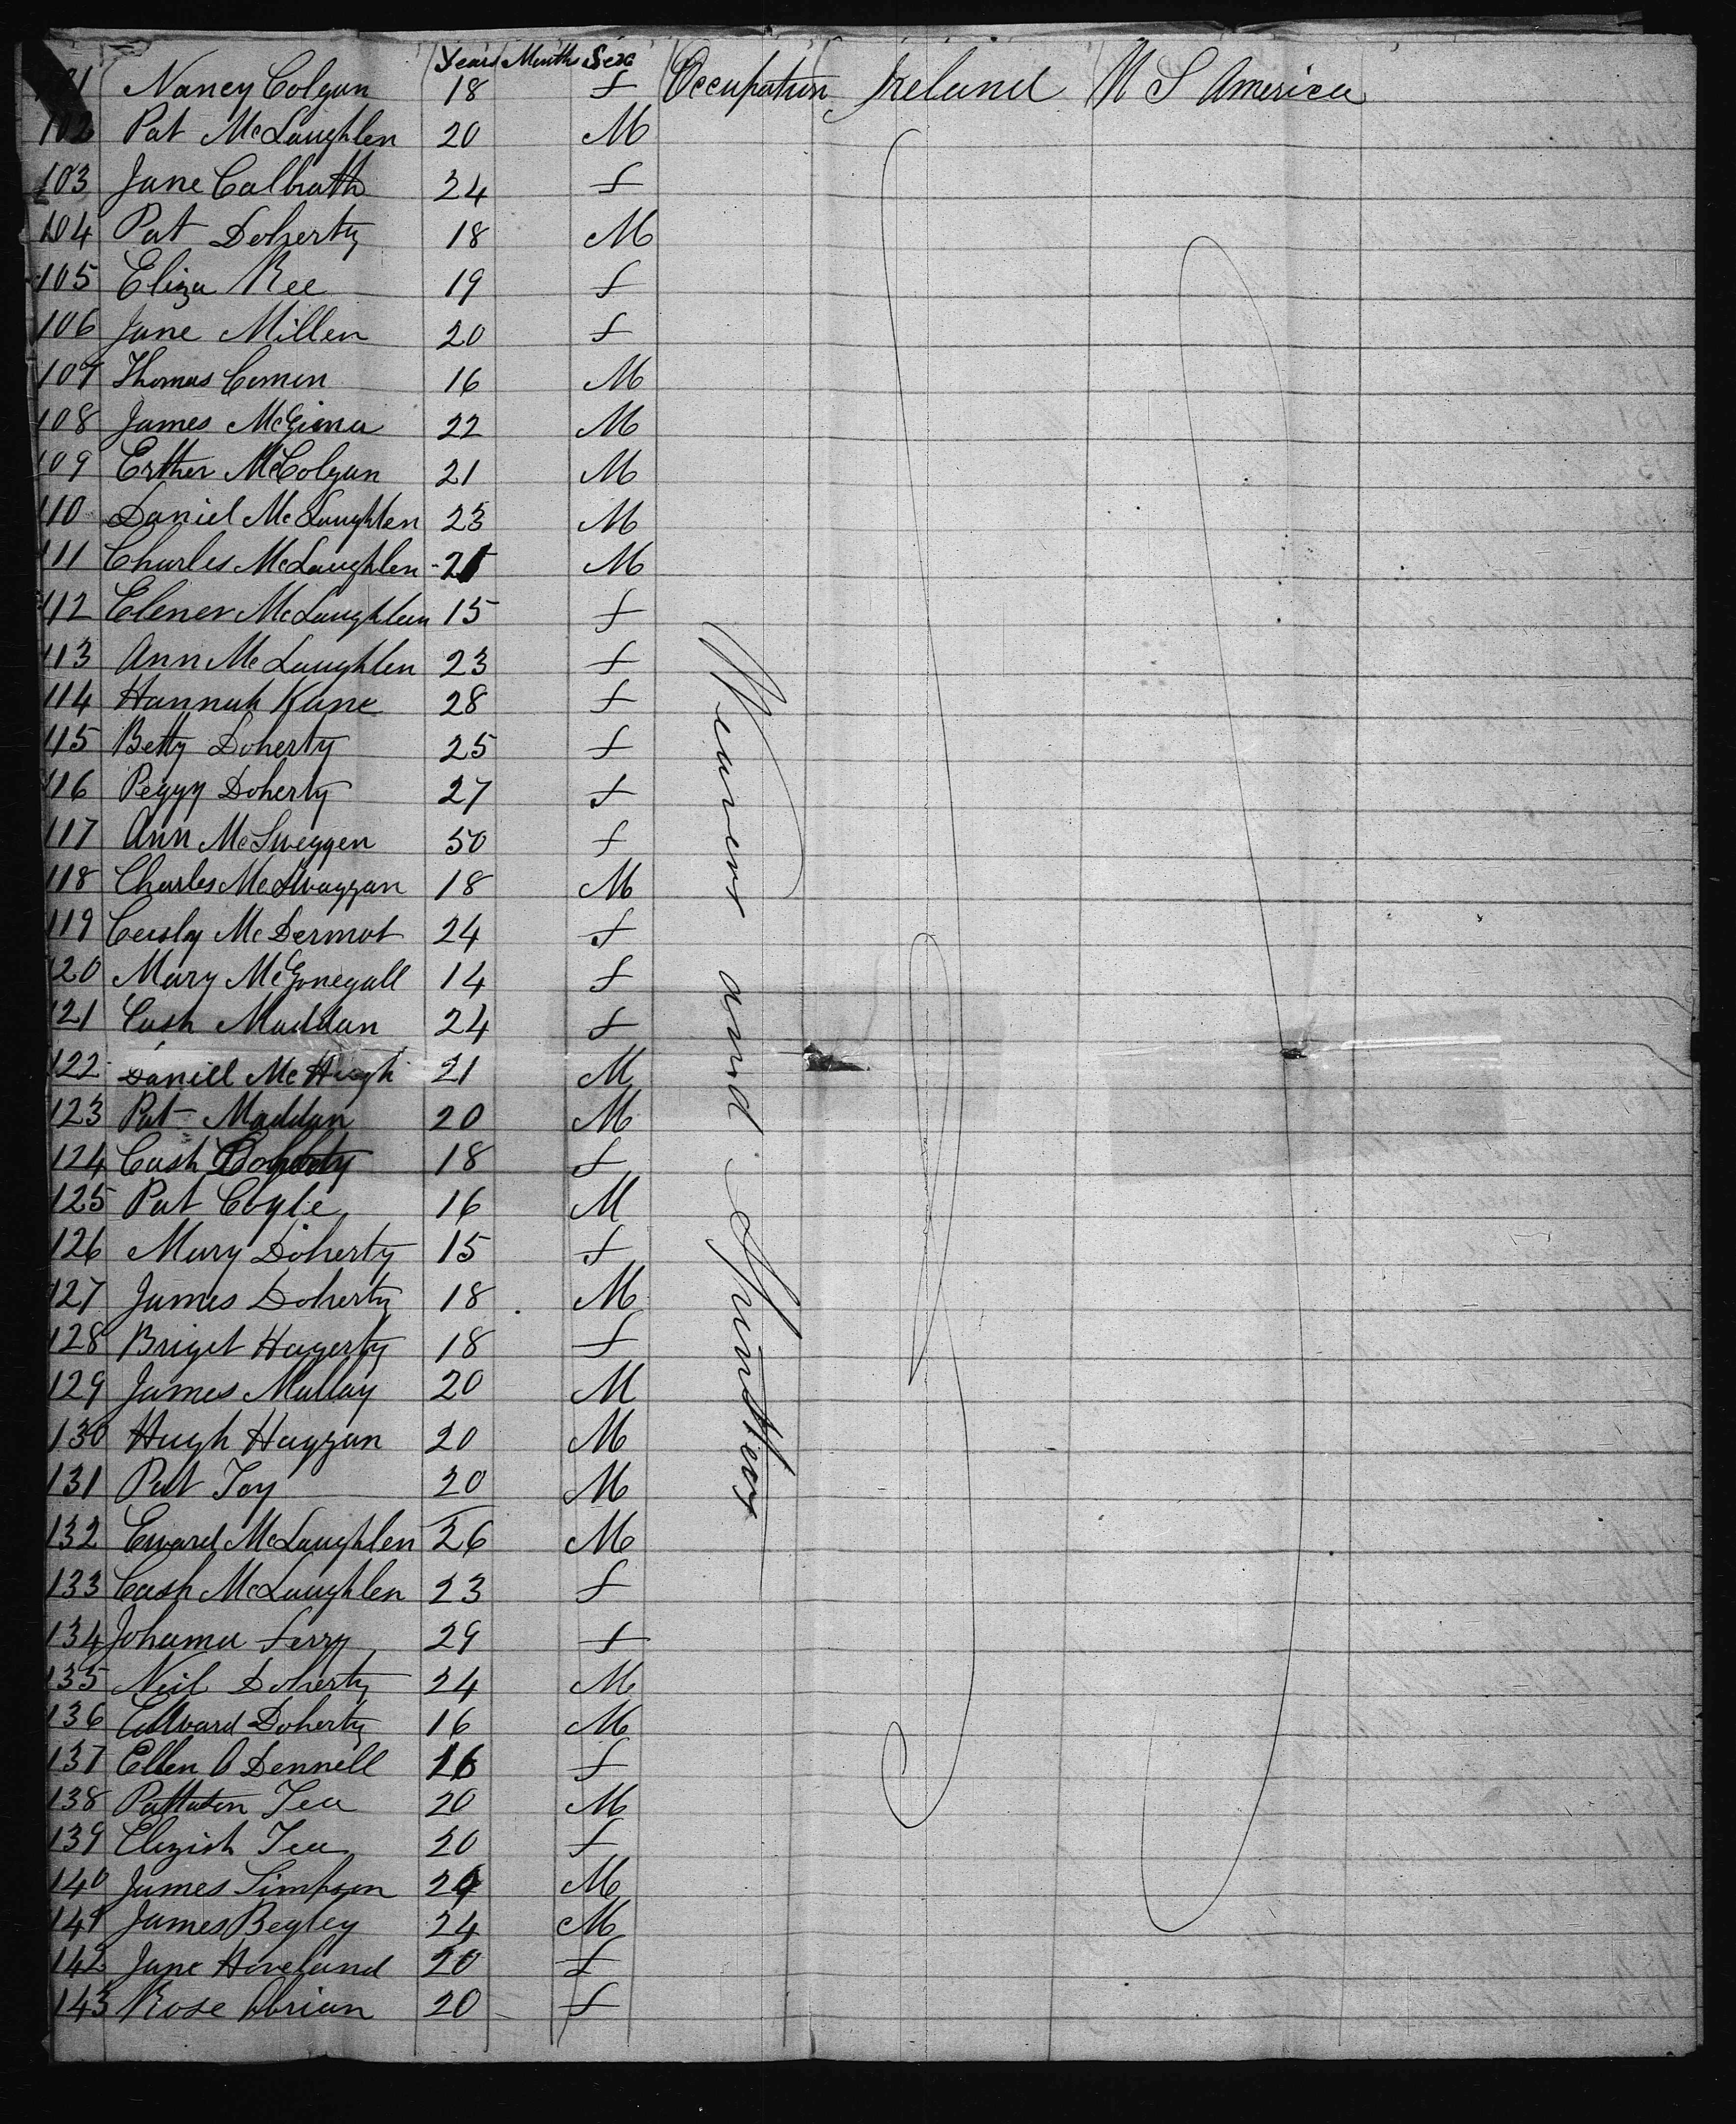 Years Months Sex
101 Nancy Colgan 18 f Occupation Ireland U S America
102 Pat McLaughlen 20 M
103 Jane Calbrath 24 f
104 Pat Doherty 18 M
105 Eliza Kee 19 f
106 Jane Millen 20 f
107 Thomas Comen 16 M
108 James McGinna 22 M
109 Erther McColgan 21 M
110 Daniel McLaughlen 23 M
111 Charles McLaughlen 21 M
112 Elener McLaughlen 15 f
113 Ann McLaughlen 23 f
114 Hannah Kane 28 f
115 Betty Doherty 25 f
116 Peggy Doherty 27 f
117 Ann McSweggen 50 f
118 Charles McSwaggan 18 M
119 Ceisly McDermot 24 f
120 Mary McGonegall 14 f
121 Cash Maddan 24 f
122 Daniell McHugh 21 M
123 Pat Maddan 20 M
124 Cash Doherty 18 f
125 Pat Coyle 16 M
126 Mary Doherty 15 f
127 James Doherty 18 M
128 Briget Hagerty 18 f
129 James Mullay 20 M
130 Hugh Haggan 20 M
131 Pat Toy 20 M
132 Eward McLaughlen 26 M
133 Cash McLaughlen 23 f
134 Johanna ferry 29 f
135 Neil Doherty 24 M
136 Edward Doherty 16 M
137 Ellen O Dennell 16 f
138 Pattason Tea 20 M
139 Elizish Tea 20 f
140 James Simpson 24 M
141 James Begley 24 M
142 Jane Hoveland 20 f
143 Rose Obrian 20 f
Weavers and Spinsters